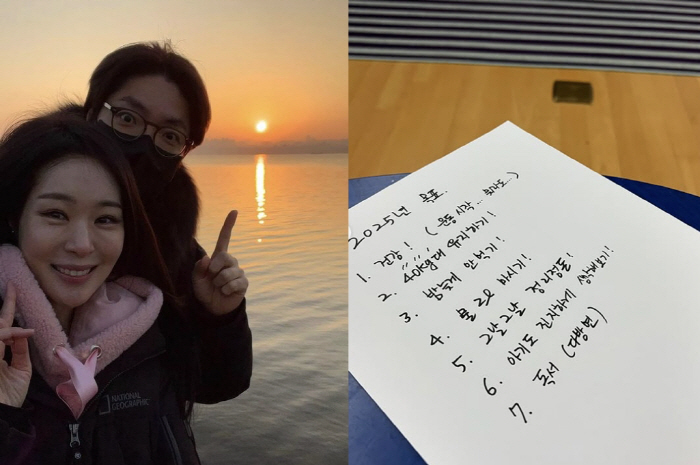 NATIONAL
GEOGRAPHIC
2025년 목표.
1. 건강! (운동 시작... 뭐라도..)
2. 40kg대 유지하기!
3. 밤늦게 안 먹기!
4. 물 2L 마시기!
5. 그날그날 정리정돈!
6. 아기도 진지하게 생각해보기!
7. 독서 (다방면)